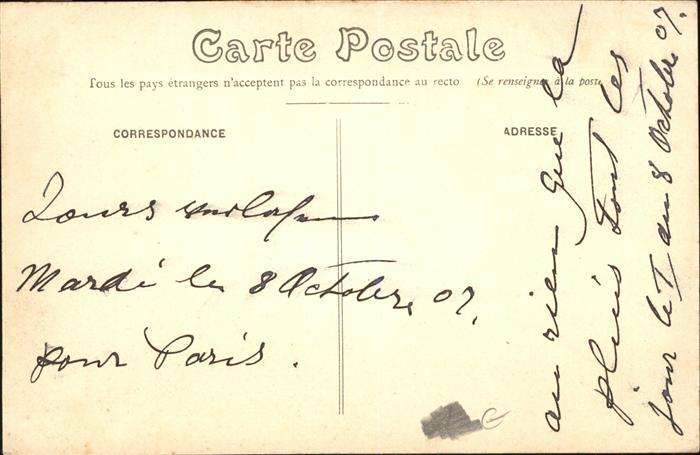 Carte Postale
Tous les pays étrangers n'acceptent pas la correspondance au recto (Se renseigner à la poste
CORRESPONDANCE
ADRESSE
Jours
Mardi le 8 Octobre 07.
pour Paris.
au rien que la
pluis tout les
jour le 7 au 8 Octobre 07.